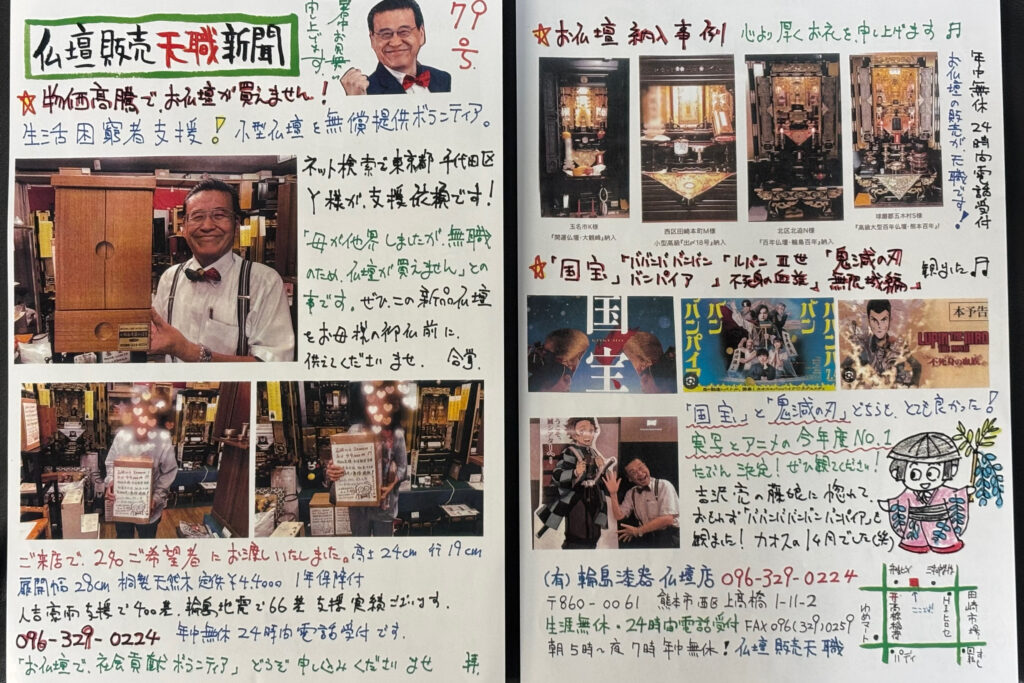 仏壇販売天職新聞
暑中お見舞い
申し上げます。
79号.5
☆物価高騰で、お仏壇が買えません!
生活困窮者支援!小型仏壇を無償提供ボランティア。
ネット検索で東京都千代田区
Y様が、支援依頼です!
「母が他界しましたが、無職
のため、仏壇が買えません」との
事です。ぜひ、この新品仏壇
をお母様の御仏前に、
供えてくださいませ 合掌.
ご来店で、2名ご希望者にお渡しいたしました。高さ24cm 行19cm
扉開幅28cm 桐製天然木 定価¥44000 1年保障付
人吉豪雨支援で400基、輪島地震で66基支援実績ございます。
096-329-0224 年中無休24時間電話受付です.
「お仏壇で、社会貢献ボランティア」どうぞ申し込みくださいませ 拝.
☆お仏壇納入事例 心より厚くお礼を申し上げます♬
年中無休 24時間電話受付
お仏壇の販売が、天職です!
玉名市K様
『開運仏壇・大観峰』納入
西区田崎本町M様
小型高級『出が18号』納入
北区北迫N様
『百年仏壇・輪島百年』納入
球磨郡五木村S様
『高級大型百年仏壇・熊本百年』
☆「国宝」「ババンババンバン バンパイア」「ルパン三世 不死身の血族」「鬼滅の刃 無限城編」観ました♬
国宝
ババンババンバンバンパイア
本予告
LUPIN THE IIIRD
不死身の血族
「国宝」と「鬼滅の刃」どちらも、とても良かった!
実写とアニメの今年度No.1
たぶん決定!ぜひ観てください!
吉沢亮の藤娘に惚れて、
おもわず「ババンババンバンバンパイア」も
観ました!カオスの1ヶ月でした(笑)
(有)輪島漆器仏壇店 096-329-0224
〒860-0061 熊本市西区上高橋1-11-2
生涯無休・24時間電話受付 FAX096(329)0259
朝5時~夜7時 年中無休!仏壇販売天職
ここです
田崎市場
ゆめマート